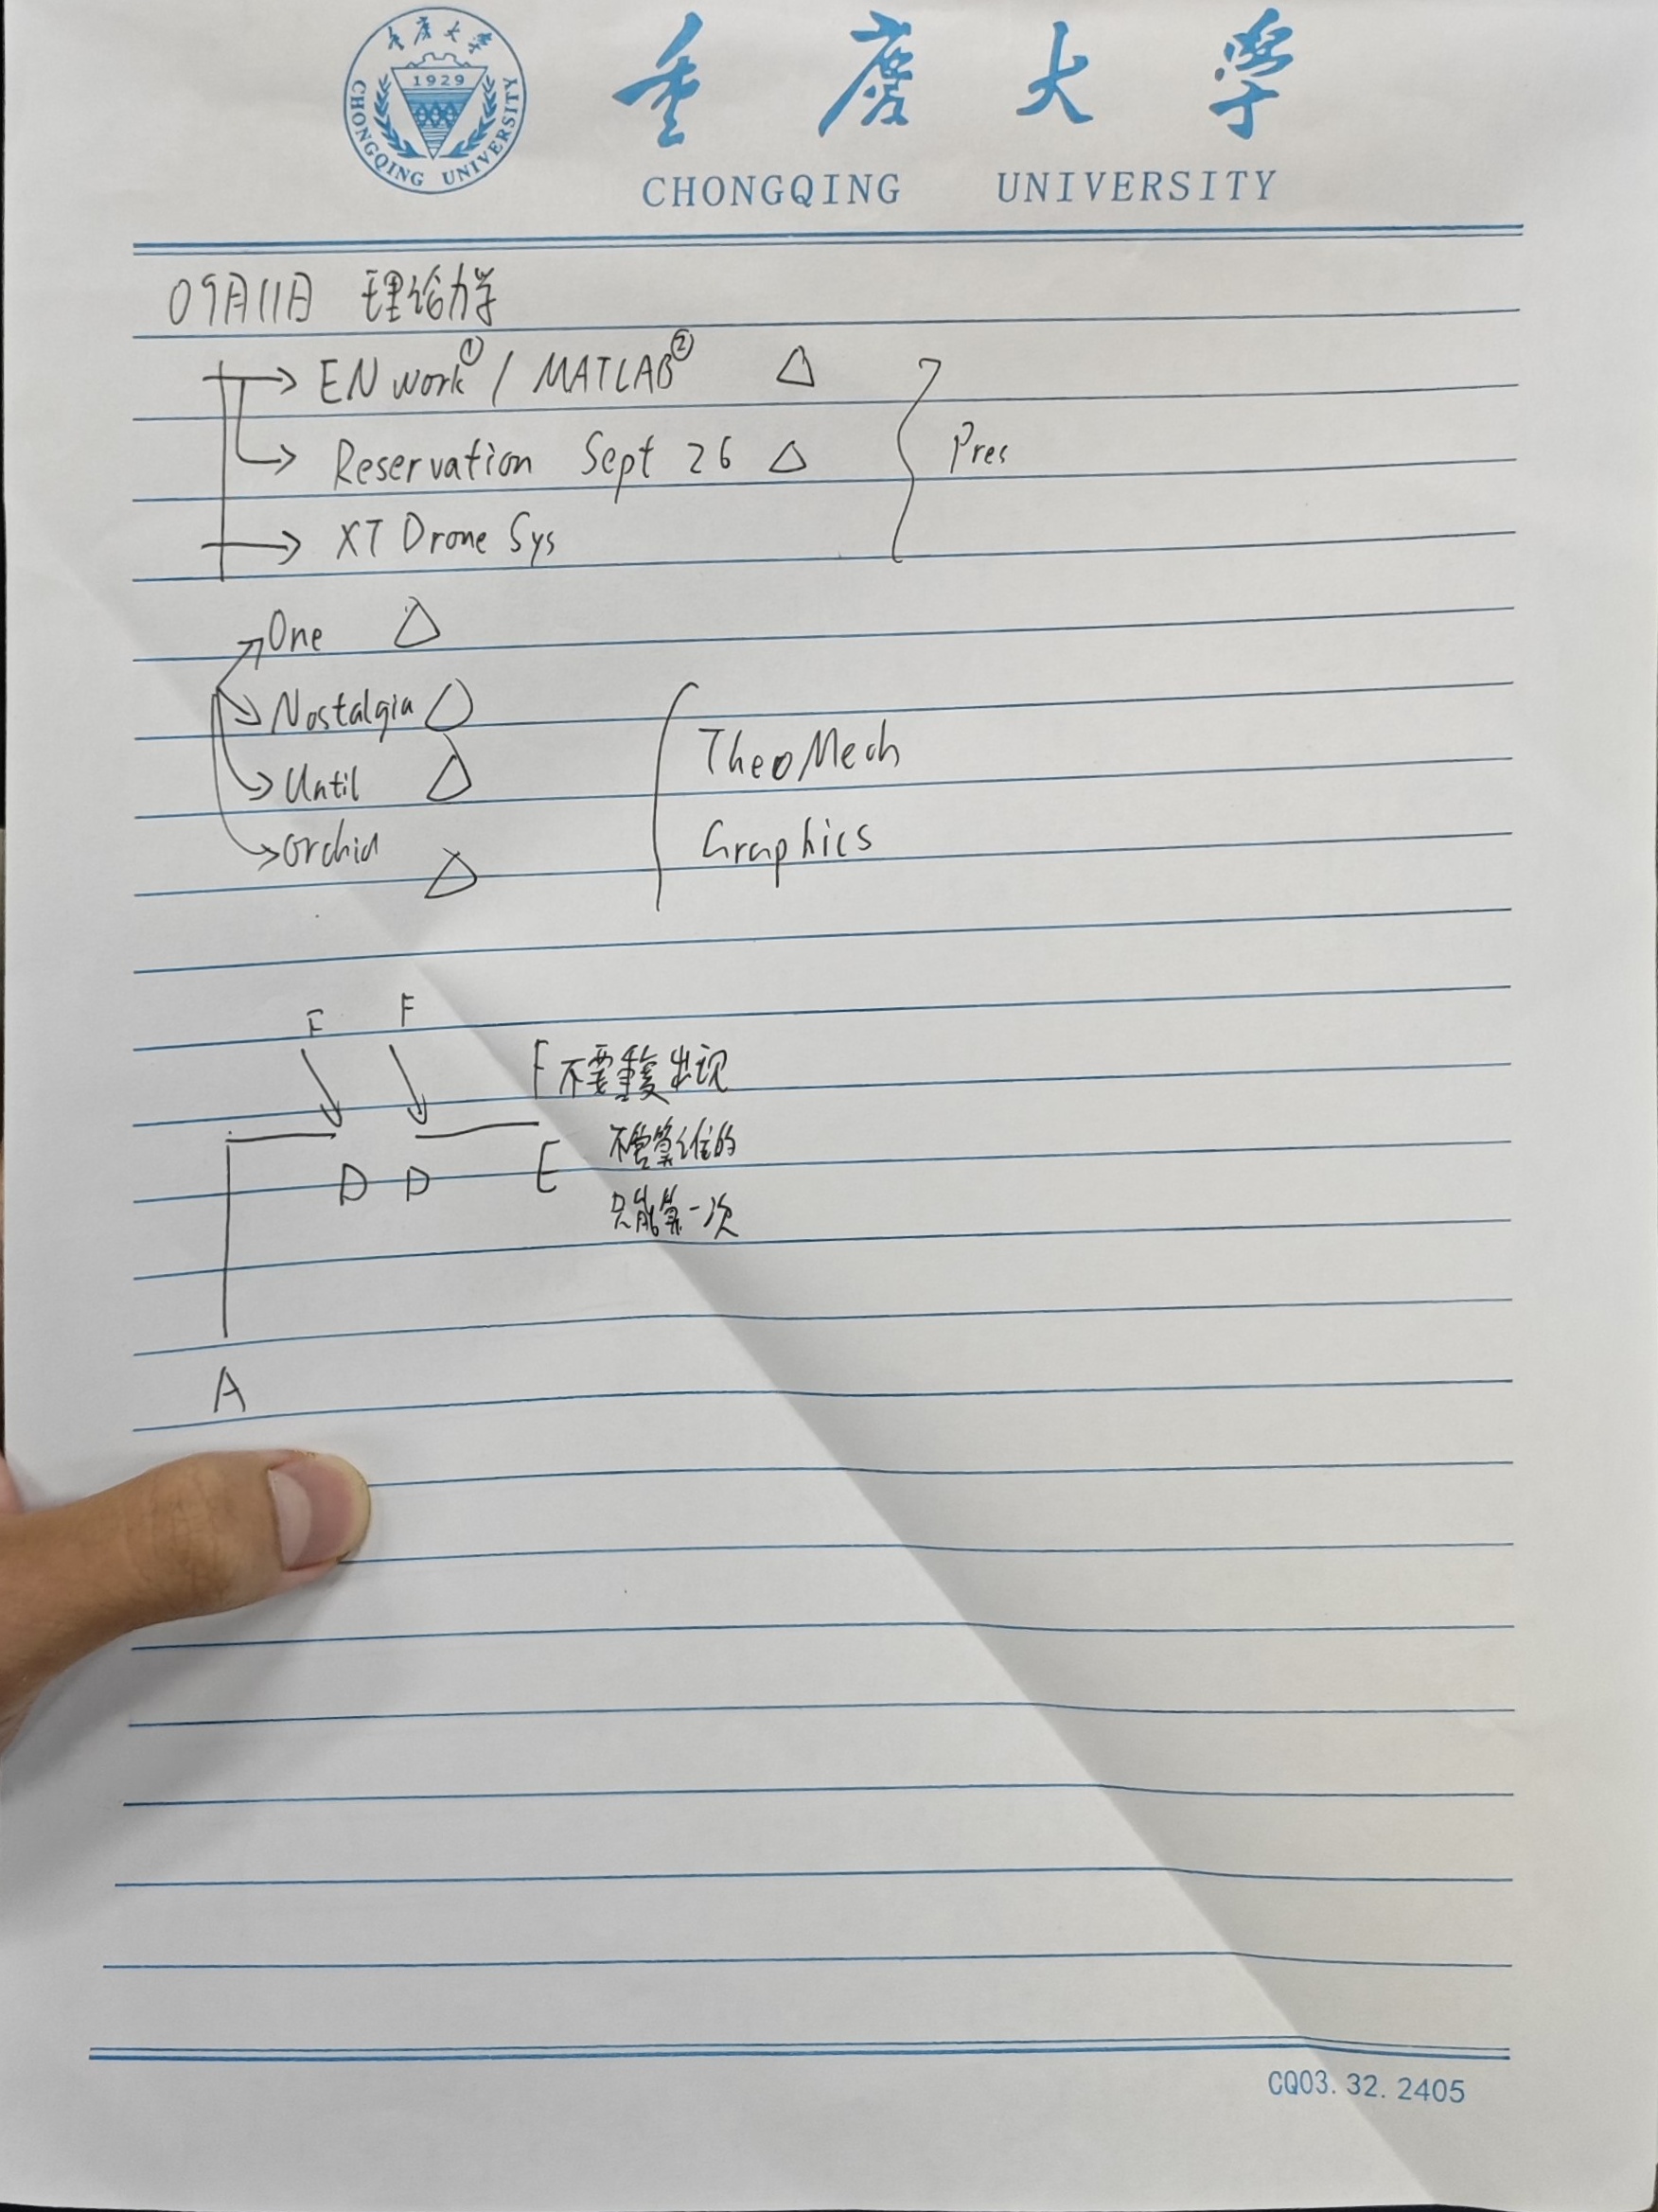 重庆大学
1929
CHONGQING UNIVERSITY
重庆大学
CHONGQING UNIVERSITY
09月11日 理论力学
EN work① / MATLAB② △
Reservation Sept 26 △
Pres
XT Drone Sys
One △
Nostalgia
Until △
Orchid △
TheoMech
Graphics
F F
F不要重复出现
不管算谁的
D D E
只能算一次
A
CQ03.32.2405